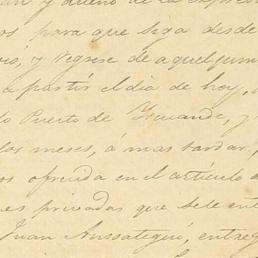 y dueño de la expres
os para que siga desde
ois, y regrese de aquel pun
a partir el dia de hoy,
lo Puerto de Iquande, y
los meses, á mas tardar,
os ofrecida en el artículo
es privadas que se le ent
Juan Aussategui, entreg